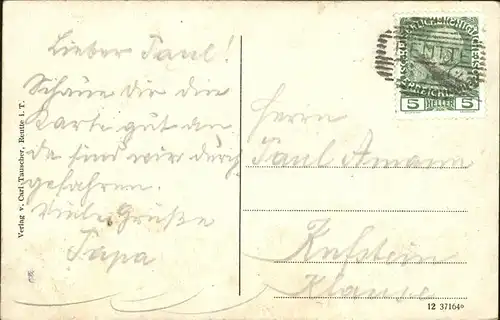 Lieber Paul!
Schaue Dir die
Karte gut an
da sind wir durch
gefahren.
Viele Grüße
Papa
Herrn
Paul Amann
Kufstein
Klause
5 HELLER 5
Verlag v. Carl Tauscher, Reutte i. T.
12 37164ᵇ